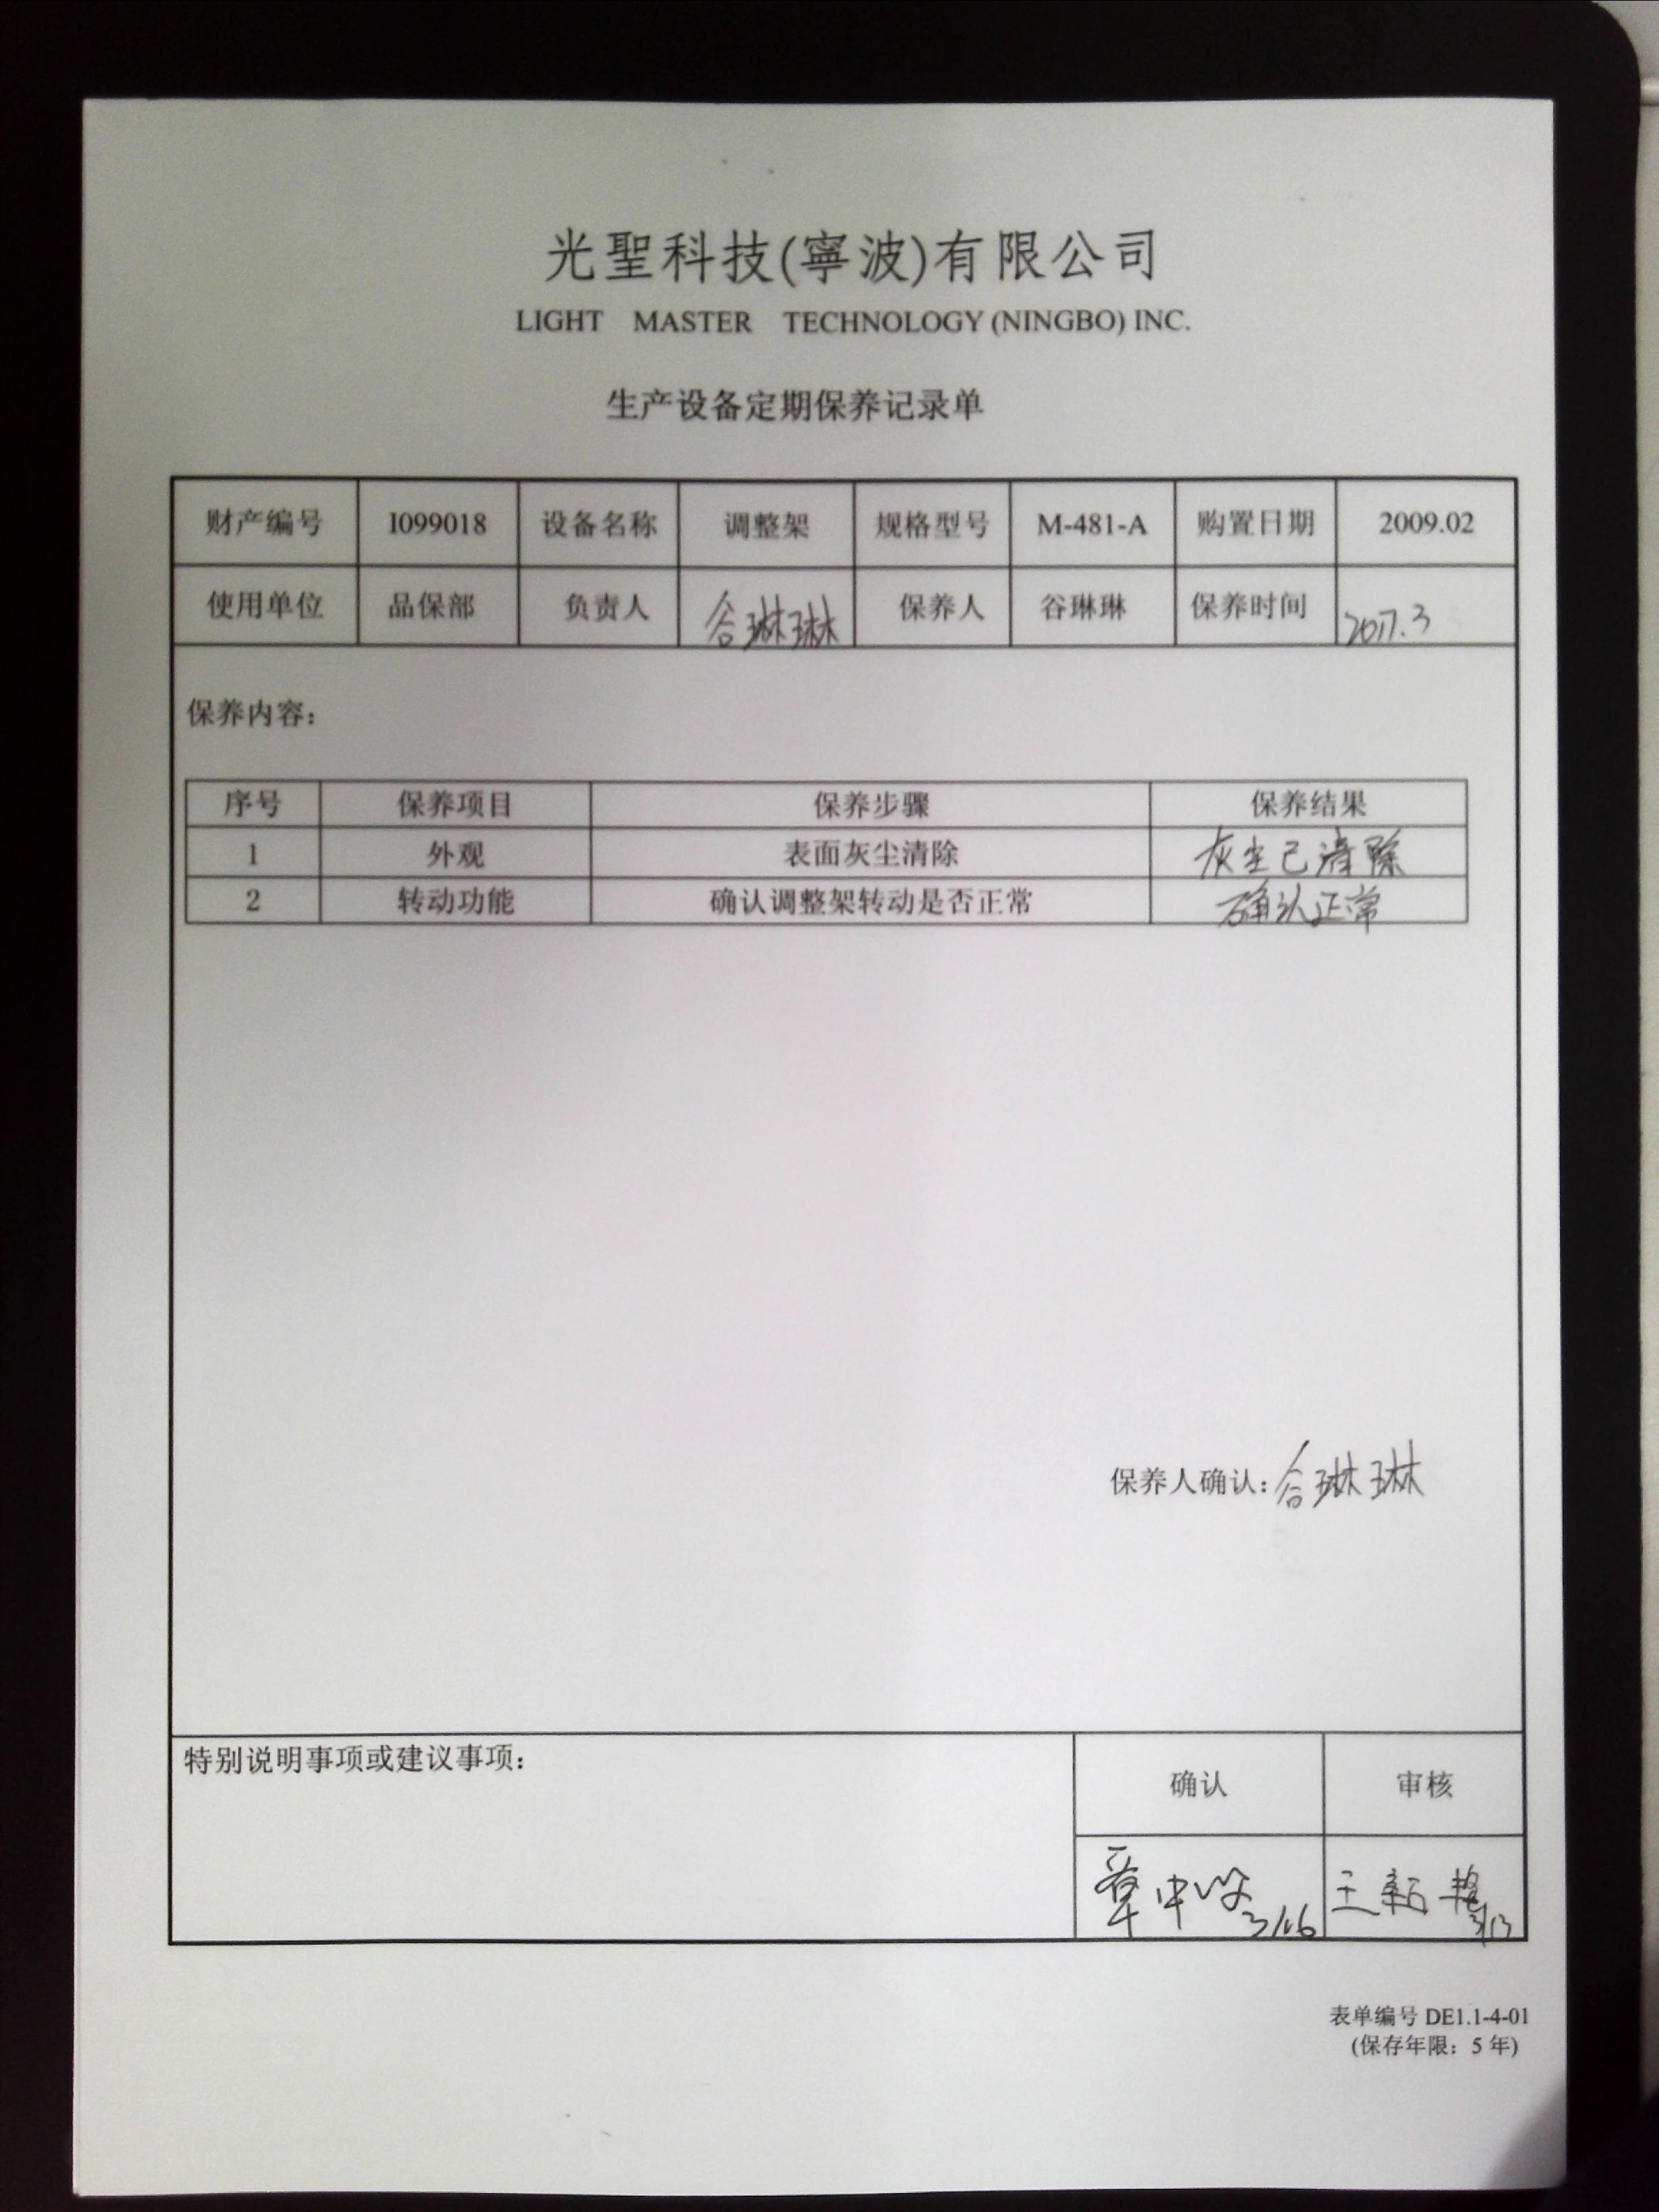 光聖科技(寧波)有限公司
LIGHT MASTER TECHNOLOGY (NINGBO) INC.
生产设备定期保养记录单
财产编号 I099018 设备名称 调整架 规格型号 M-481-A 购置日期 2009.02
使用单位 品保部 负责人 谷琳琳 保养人 谷琳琳 保养时间 2017.3
保养内容：
序号 保养项目 保养步骤 保养结果
1 外观 表面灰尘清除 灰尘已清除
2 转动功能 确认调整架转动是否正常 确认正常
保养人确认：谷琳琳
特别说明事项或建议事项：
确认 审核
王新艳
表单编号 DE1.1-4-01
(保存年限：5 年)